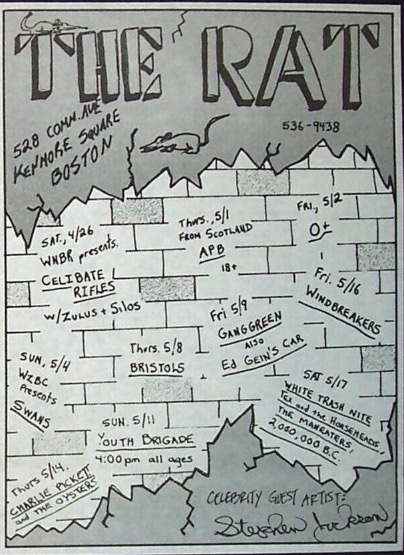 THE RAT
528 COMM. AVE
KENMORE SQUARE
BOSTON
536-9438
SAT., 4/26
WNBR presents.
CELIBATE
RIFLES
w/ZULUS + SILOS
THURS., 5/1
FROM SCOTLAND
APB
18+
FRI., 5/2
O+
SUN, 5/4
WZBC
Presents
SWANS
Thurs. 5/8
BRISTOLS
Fri 5/9
GANGGREEN
ALSO
ED GEIN'S CAR
Fri. 5/16
WINDBREAKERS
SUN. 5/11
YOUTH BRIGADE
4:00 pm all ages
Thurs 5/14.
CHARLIE PICKETT
and THE OYSTERS
SAT 5/17
WHITE TRASH NITE
TEX and the HORSEHEADS,
THE MANEATERS,
2,000,000 B.C.
CELEBRITY GUEST ARTIST:
Stephen Jackson